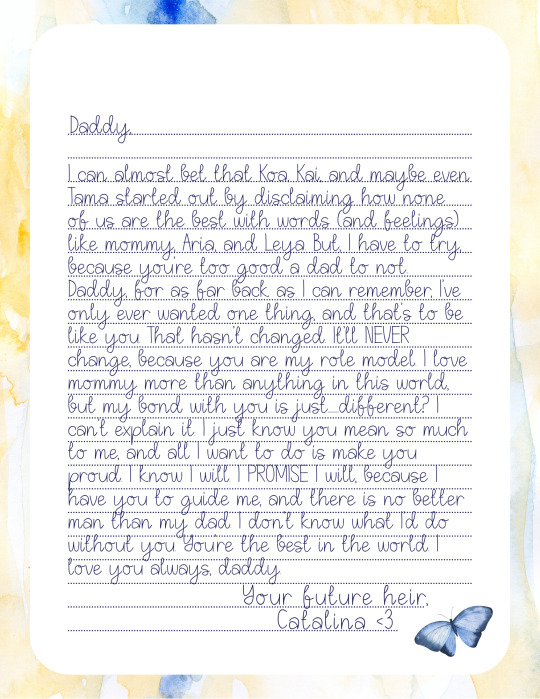 Daddy,
I can almost bet that Koa, Kai, and maybe even
Tama started out by disclaiming how none
of us are the best with words (and feelings)
like mommy, Aria, and Leya. But, I have to try,
because you're too good a dad to not.
Daddy, for as far back as I can remember, I've
only ever wanted one thing, and that's to be
like you. That hasn't changed. It'll NEVER
change, because you are my role model. I love
mommy more than anything in this world,
but my bond with you is just...different? I
can't explain it. I just know you mean so much
to me, and all I want to do is make you
proud. I know I will. I PROMISE I will, because I
have you to guide me, and there is no better
man than my dad. I don't know what I'd do
without you. You're the best in the world. I
love you always, daddy.
Your future heir,
Catalina <3